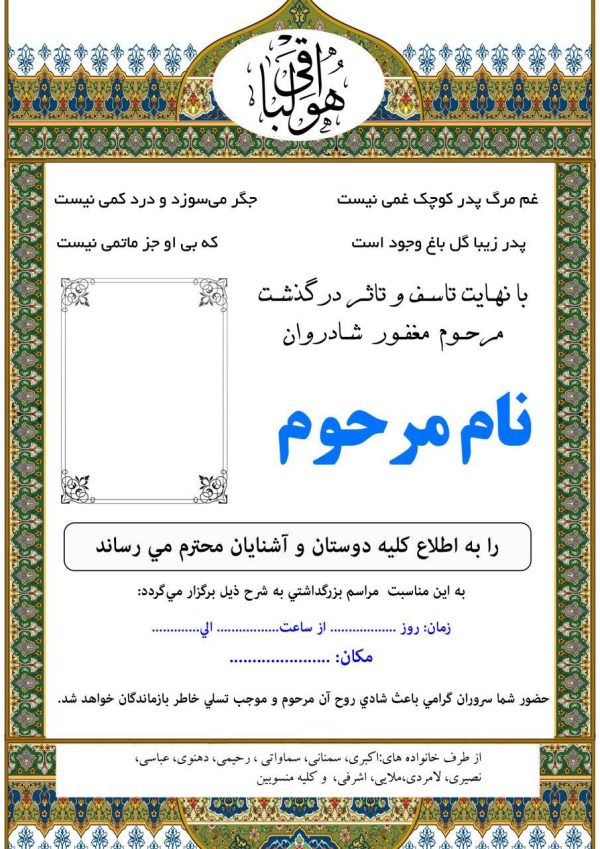 هو الباقی
غم مرگ پدر کوچک غمی نیست جگر می‌سوزد و درد کمی نیست
پدر زیبا گل باغ وجود است که بی او جز ماتمی نیست
با نهایت تاسف و تاثر درگذشت
مرحوم مغفور شادروان
نام مرحوم
را به اطلاع کلیه دوستان و آشنایان محترم مي رساند
به این مناسبت مراسم بزرگداشتي به شرح ذیل برگزار مي‌گردد:
زمان: روز .................. از ساعت................. الي.............
مکان: ......................
حضور شما سروران گرامي باعث شادي روح آن مرحوم و موجب تسلي خاطر بازماندگان خواهد شد.
از طرف خانواده های:اکبری، سمنانی، سماواتی ، رحیمی، دهنوی، عباسی،
نصیری، لامردی،ملایی، اشرفی، و کلیه منسوبین